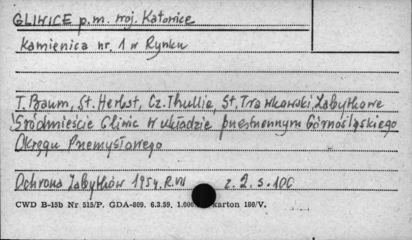 GLIWICE p.m. woj. Katowice
Kamienica nr. 1 w Rynku
T. Baum, St. Herbst, Cz. Thullie, St. Trawkowski, Zabytkowe
Śródmieście Gliwic w układzie przestrzennym Górnośląskiego
Okręgu Przemysłowego
Ochrona Zabytków 1954. R. VII z. 2. s. 100
CWD B-15b Nr 515/P. GDA-809. 6.3.59. 1.000 karton 180/V.